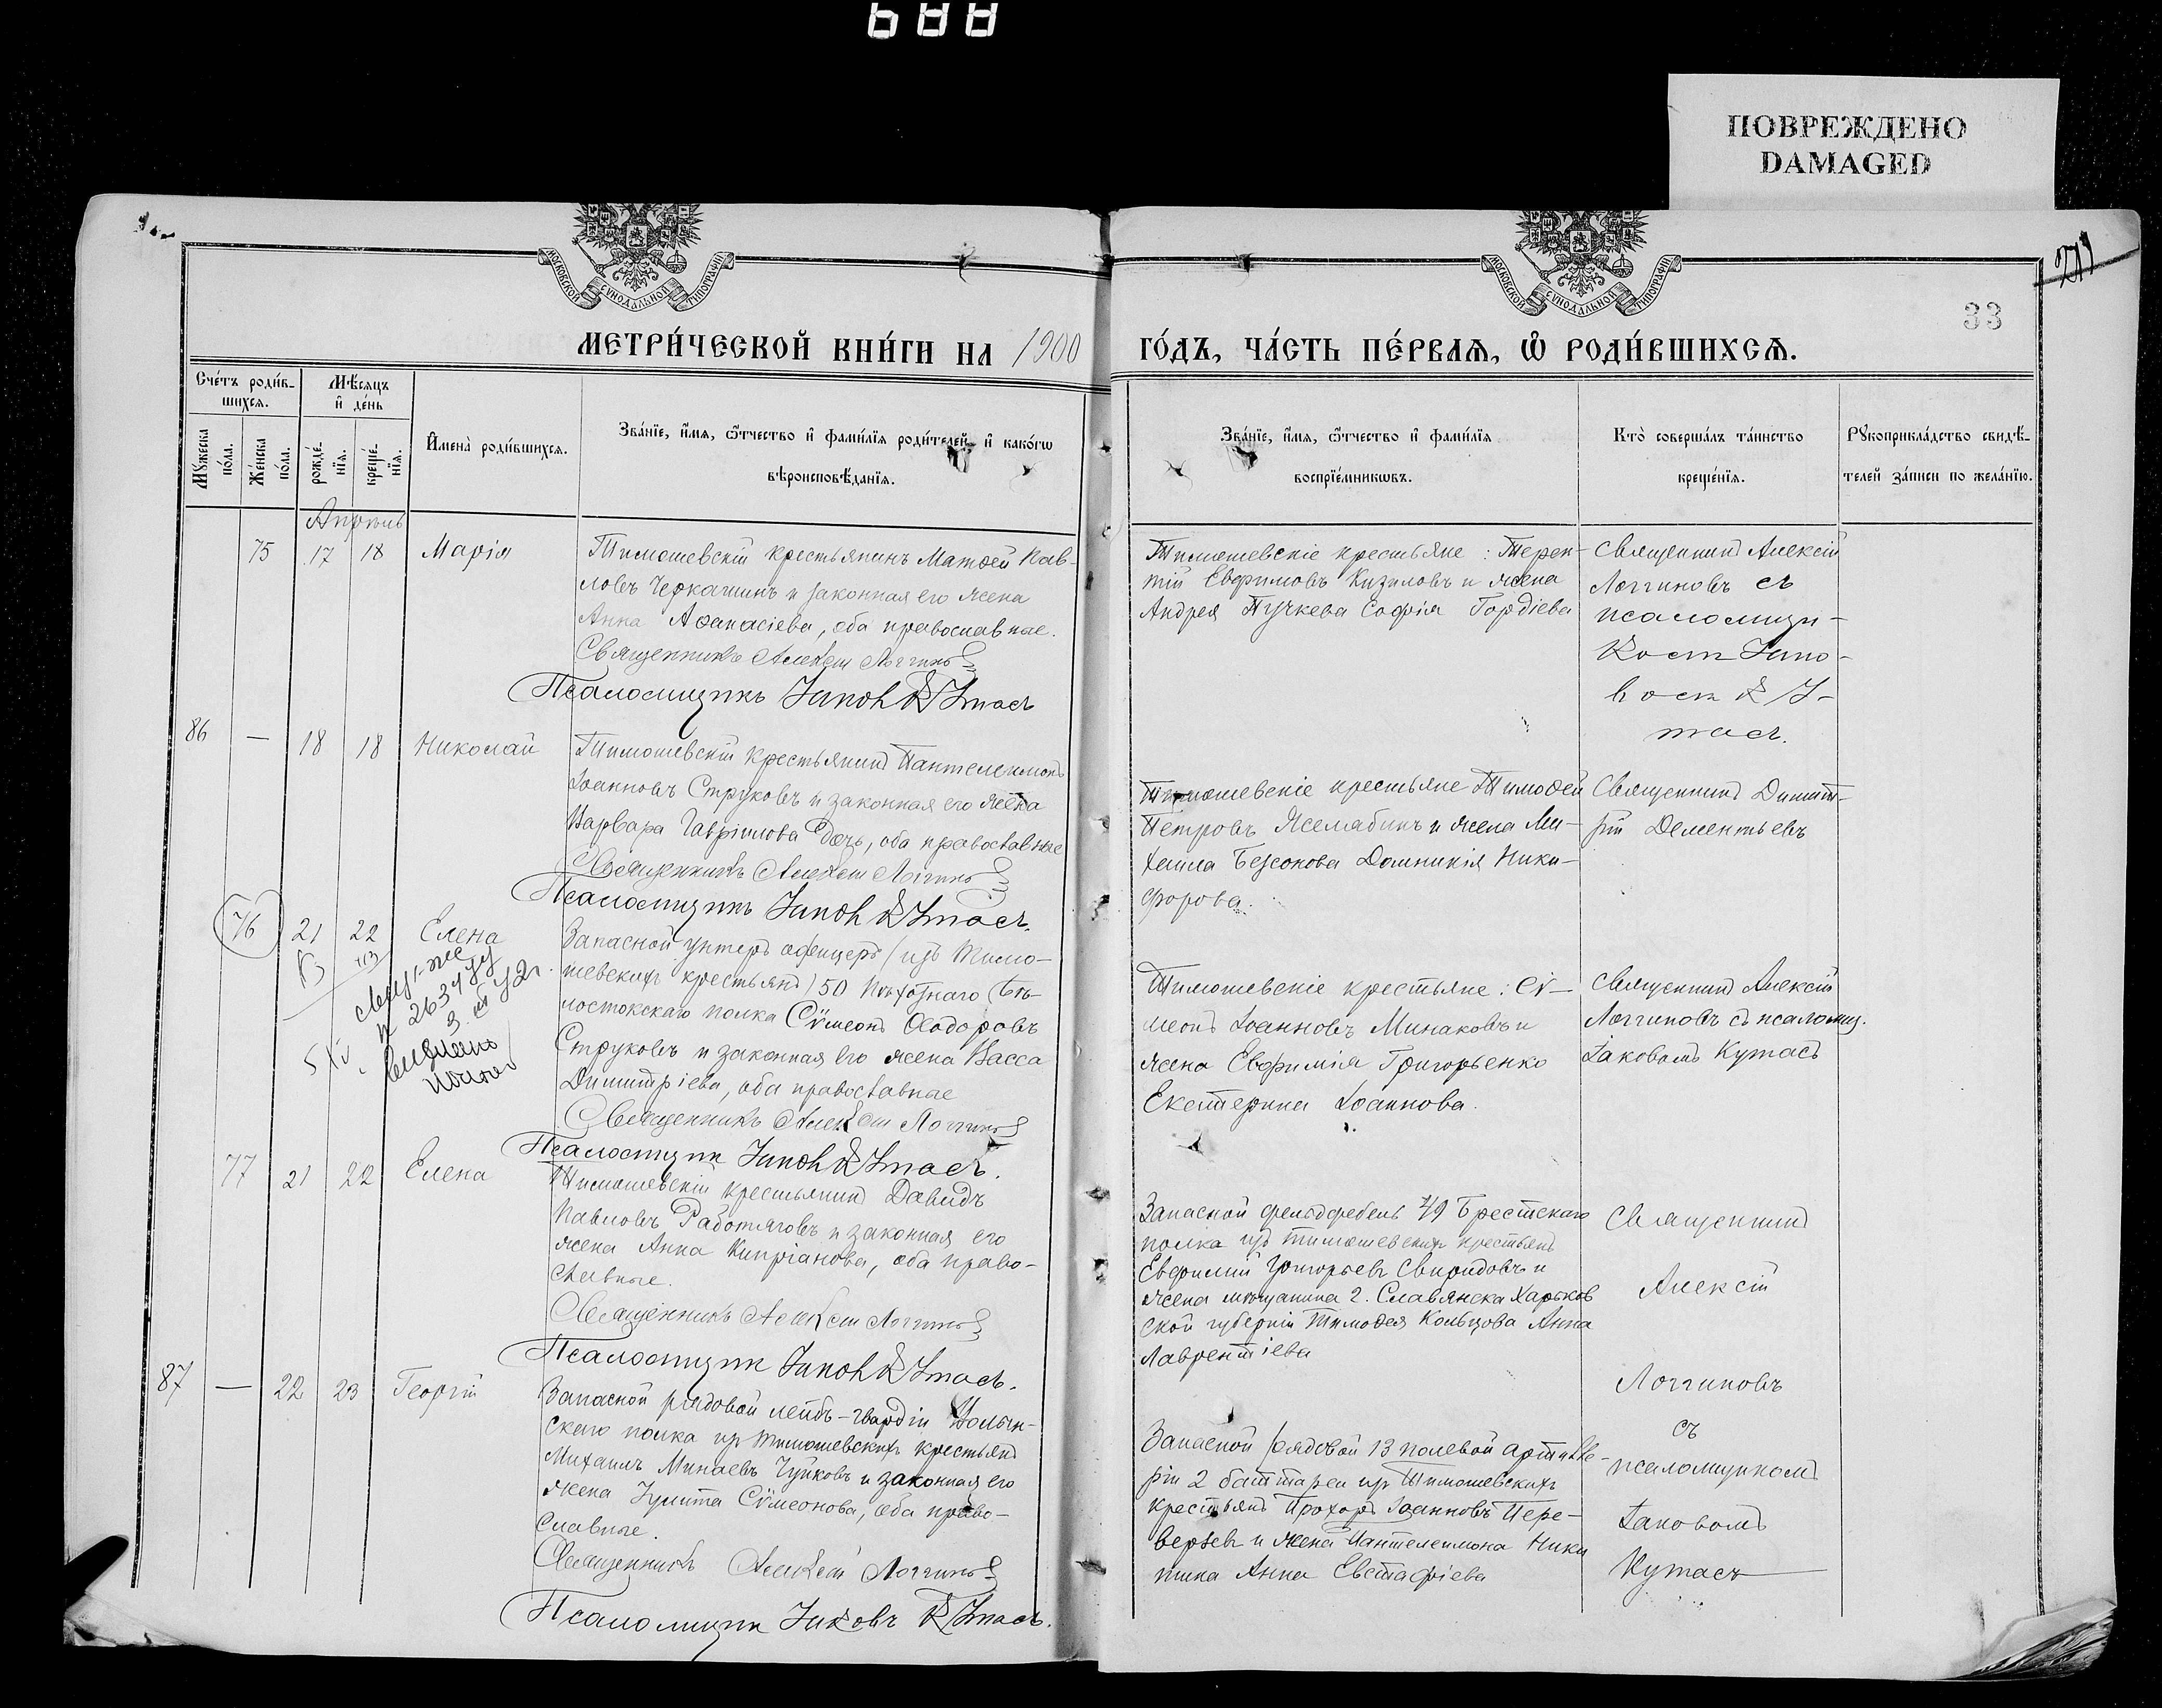 688
ПОВРЕЖДЕНО
DAMAGED
МОСКОВСКОЙ СѴНОДАЛЬНОЙ ТИПОГРАФІИ
МОСКОВСКОЙ СѴНОДАЛЬНОЙ ТИПОГРАФІИ
33
МЕТРИ́ЧЕСКОЙ КНИ́ГИ НА 1900
ГО́ДЪ, ЧА́СТЬ ПЕ́РВАѦ, Ѡ РОДИ́ВШИХСѦ.
Сче́тъ роди́в-
шихсѧ.
Мѣ́сѧцъ
и де́нь
Мꙋжеска по́ла.
Же́нска по́ла.
рожде́-
нїѧ.
креще́-
нїѧ.
Имена̀ роди́вшихсѧ.
Зва́нїе, и́мѧ, ѻ́тчество и фами́лїѧ роди́телей, и како́гѡ
вѣроисповѣ́данїѧ.
Зва́нїе, и́мѧ, ѻ́тчество и фами́лїѧ
воспрїе́мникѡвъ.
Кто̀ соверша́лъ та́инство
креще́нїѧ.
Рꙋкоприкла́дство свидѣ́-
телей за́писи по жела́нїю.
Апрѣль
75 17 18 Марія
Тимошевскій крестьянинъ Матѳей Пав-
ловъ Черкашинъ и законная его жена
Анна Аѳанасіева, оба православные.
Священникъ Алексій Логгиновъ
Псаломщикъ Іаковъ Кутасъ
Тимошевскіе крестьяне: Терен-
тій Евфимовъ Кизиловъ и жена
Андрея Пучкева Софія Гордіева
Священникъ Алексій
Логгиновъ съ
псаломщи-
комъ Іако-
вомъ Ку-
тасъ.
86 — 18 18 Николай
Тимошевскій крестьянинъ Пантелеимонъ
Іоанновъ Струковъ и законная его жена
Варвара Гавріилова дочь, оба православные
Священникъ Алексій Логгиновъ
Псаломщикъ Іаковъ Кутасъ.
Тимошевскіе крестьяне Тимоѳей
Петровъ Жемабинъ и жена Ми-
хаила Безсонова Домникія Ники-
форова.
Священникъ Димит-
рій Дементьевъ
76 21 22 Елена
Запасной унтеръ офицеръ (изъ Тимо-
шевскихъ крестьянъ) 50 пѣхотнаго Бѣ-
лостокскаго полка Сѵмеонъ Ѳеодоровъ
Струковъ и законная его жена Васса
Димитріева, оба православные
Священникъ Алексій Логгиновъ
Псаломщикъ Іаковъ Кутасъ.
Тимошевскіе крестьяне: Сѵ-
меонъ Іоанновъ Минаковъ и
жена Евфимія Григорьенко
Екатерина Іоаннова.
Священникъ Алексій
Логгиновъ съ псаломщ.
Іаковомъ Кутасъ
77 21 22 Елена
Тимошевскій крестьянинъ Давидъ
Павловъ Работяговъ и законная его
жена Анна Кипріанова, оба право-
славные.
Священникъ Алексій Логгиновъ
Псаломщикъ Іаковъ Кутасъ.
Запасной фельдфебель 49 Брестскаго
полка изъ тимошевскихъ крестьянъ
Евфимій Григорьевъ Свиридовъ и
жена мѣщанина г. Славянска Харьков
ской губерніи Тимоѳея Кольцова Анна
Лаврентіева
Священникъ
Алексій
Логгиновъ
съ
псаломщикомъ
Іаковомъ
Кутасъ
87 — 22 23 Георгій
Запасной рядовой лейбъ-гвардіи Волын-
скаго полка изъ тимошевскихъ крестьянъ
Михаилъ Минаевъ Чуйковъ и законная его
жена Іулита Сѵмеонова, оба право-
славные.
Священникъ Алексій Логгиновъ
Псаломщикъ Іаковъ Кутасъ.
Запасной рядовой 13 полевой артилле-
ріи 2 баттареи изъ Тимошевскихъ
крестьянъ Прохоръ Іоанновъ Пере-
верзевъ и жена Пантелеимона Ники
тина Анна Евстафіева